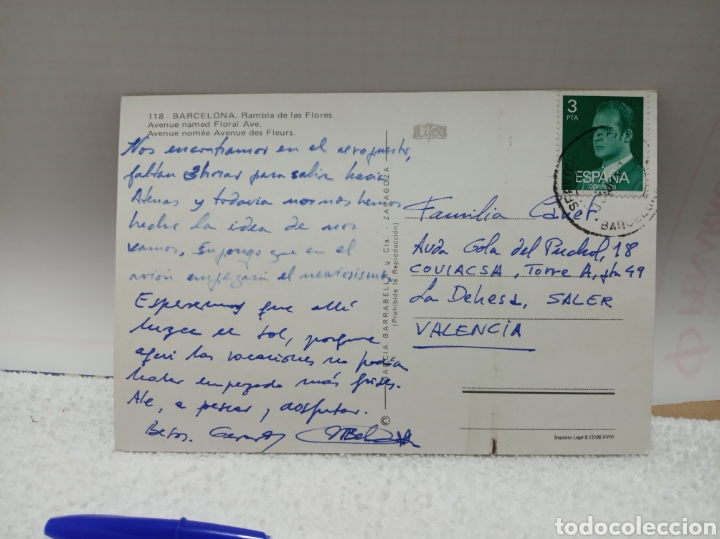 118 - BARCELONA. Rambla de las Flores.
Avenue named Floral Ave.
Avenue nomée Avenue des Fleurs.
Nos encontramos en el aeropuerto,
faltan 3 horas para salir hacia
Atenas y todavía no nos hemos
hecho la idea de nos
vamos. Supongo que en el
avión empezará el nerviosismo.
Esperemos que allí
luzca el sol, porque
aquí las vacaciones no podían
haber empezado más grises.
Ale, a pescar, y disfrutar.
Betos.
GARCIA GARRABELLA y Cia. - ZARAGOZA
(Prohibida la Reproducción)
©
3
PTA
ESPAÑA
CORREOS
BARCELONA
Familia
Avda Gola del Puchol, 18
COVIACSA, Torre A, pta 49
La Dehesa, SALER
VALENCIA
Depósito Legal B.
todocoleccion